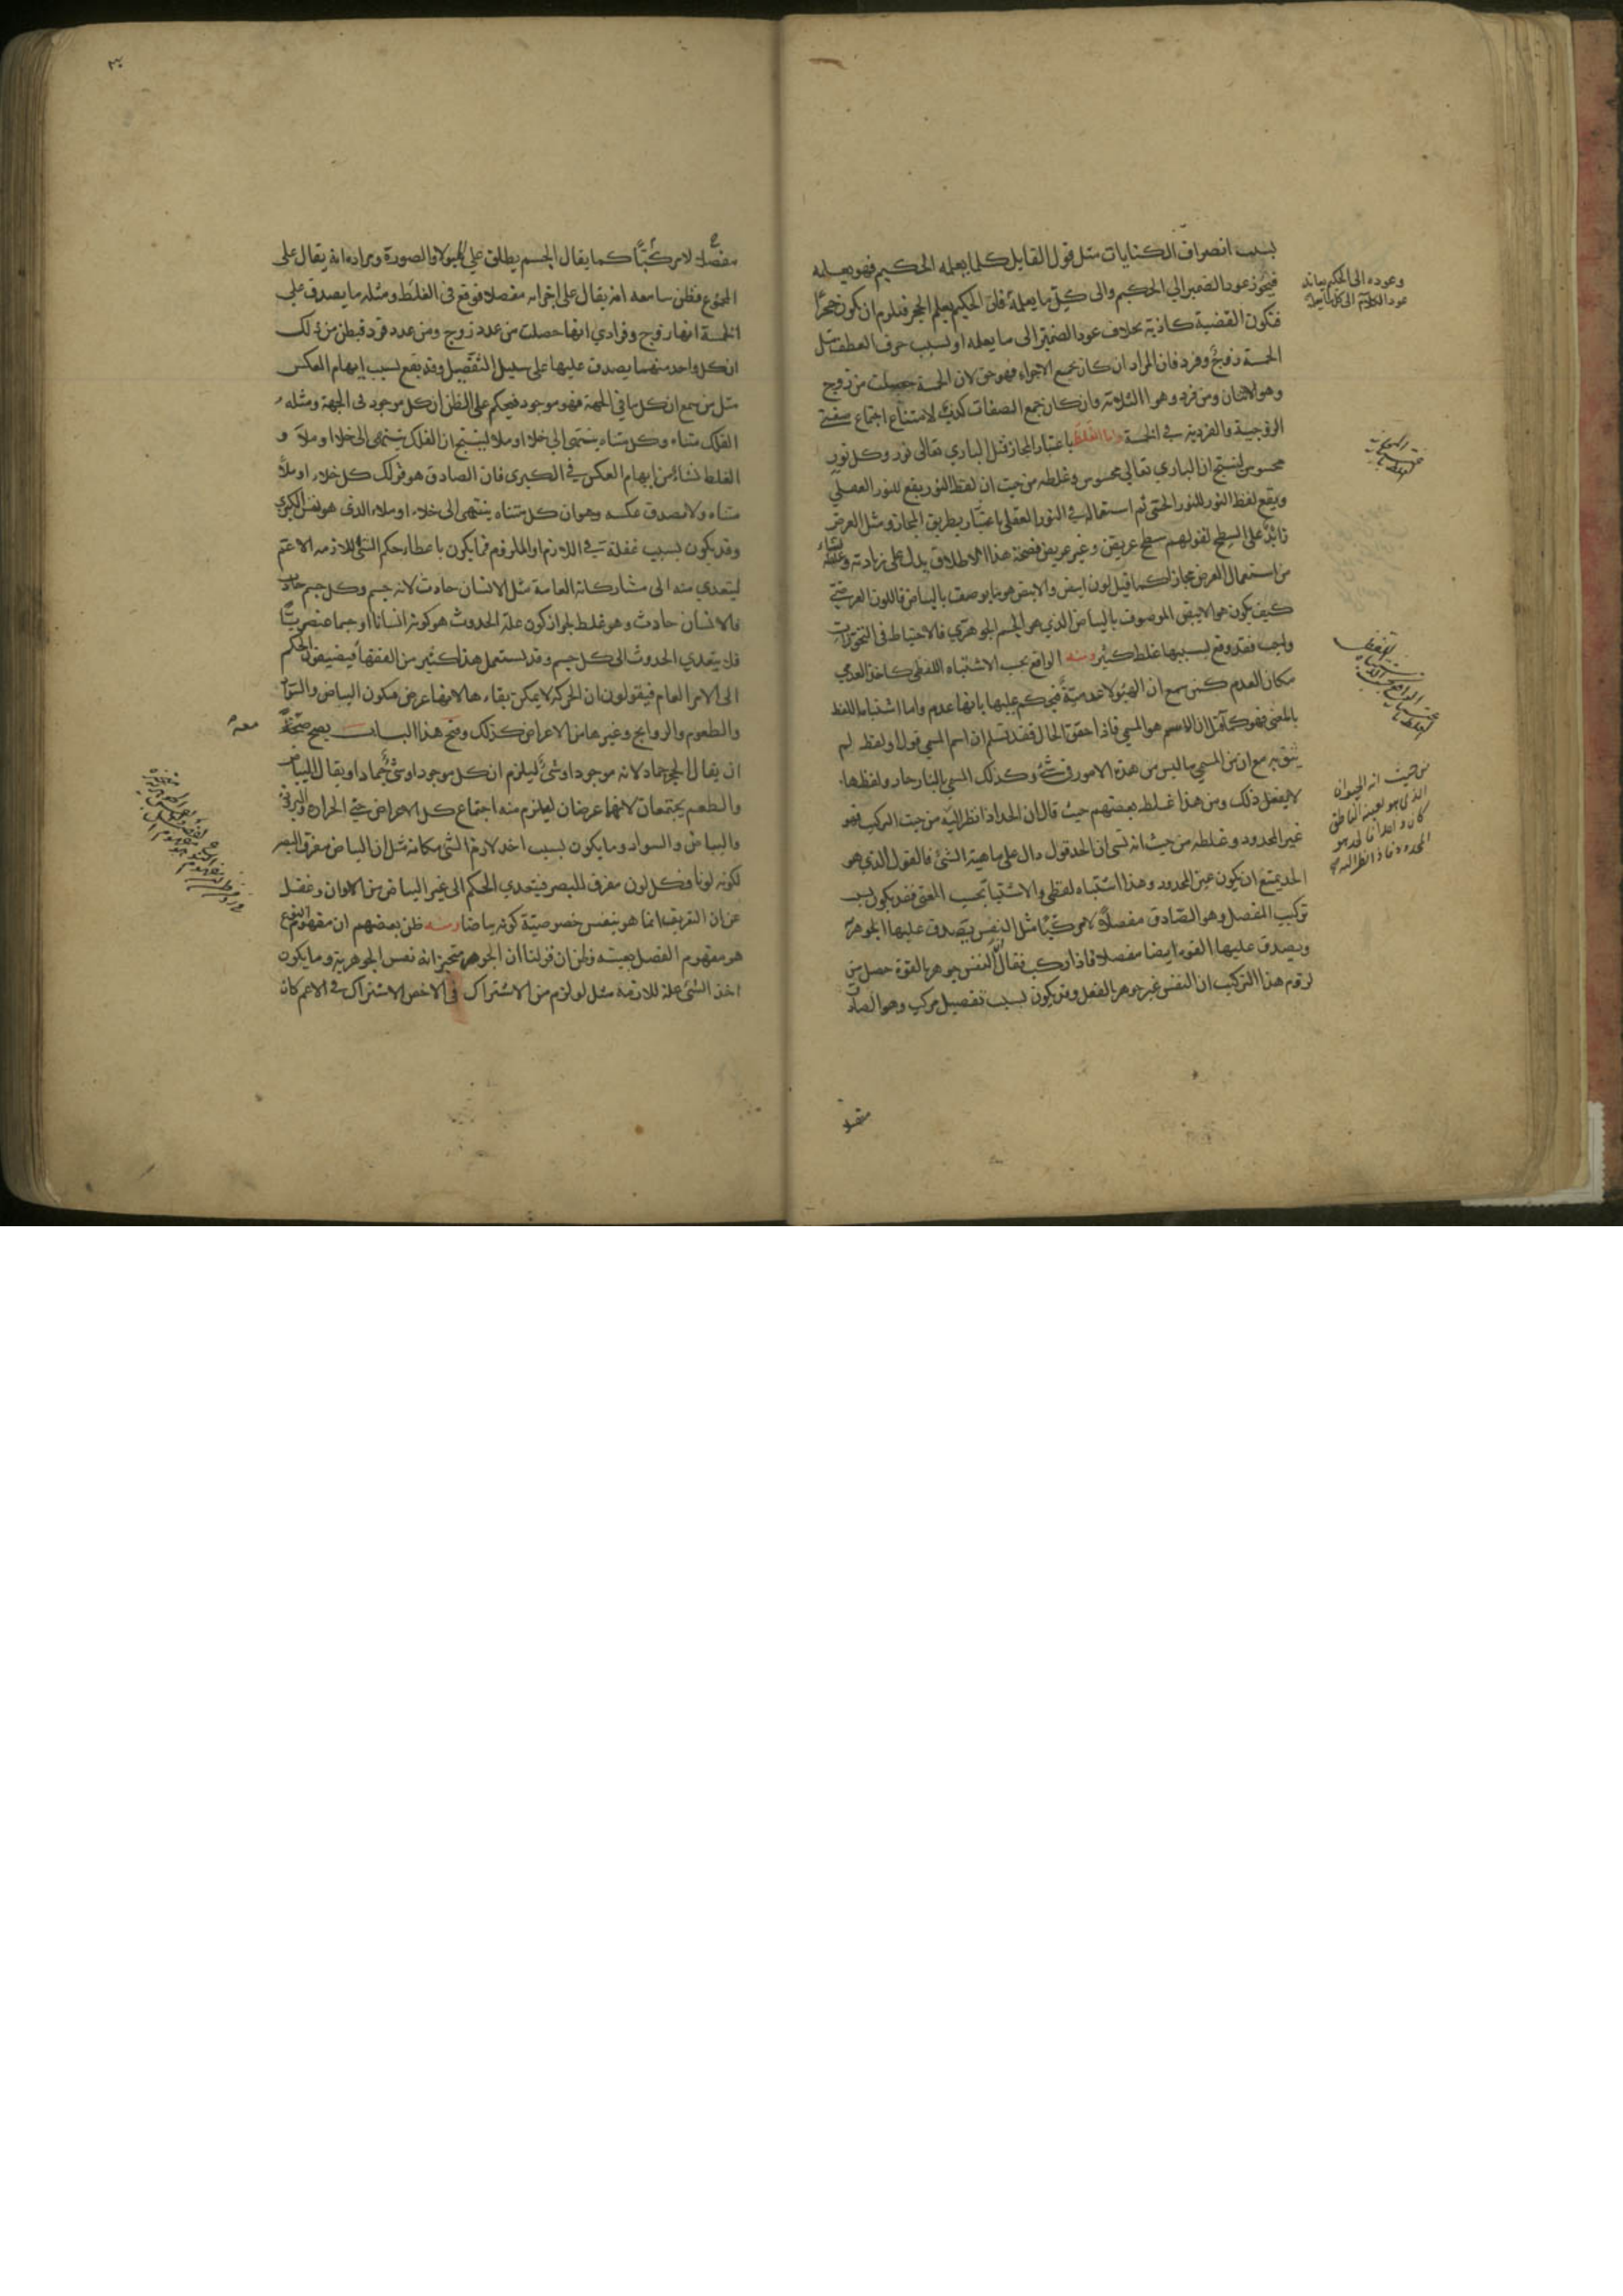 بسبب انصراف الكنايات مثل قول القايل كلما يعلمه الحكيم فهو يعلمه
فيجوز عود الضمير الى الحكيم والى كل ما يعلمه فان الحكيم يعلم الحجر فيلزم ان يكون حجرا
فتكون القضية كاذبة بخلاف عود الضمير الى ما يعلمه او لسبب حرف العطف مثل
الخمسة زوج وفرد فان المراد ان كان جميع الاجزاء فهو حق لان الخمسة حصلت من زوج
وهو الاثنان ومن فرد وهو الثلاثة وان كان جمع الصفات كذب لامتناع اجتماع صفتي
الزوجية والفردية في الخمسة واما الغلط باعتبار المجاز فمثل الباري تعالى نور وكل نور
محسوس لينتج ان الباري تعالى محسوس وغلطه من حيث ان لفظ النور يقع للنور العقلي
ويقع لفظ النور للنور الحسي ثم استعماله في النور العقلي باعتبار بطريق المجاز ومثل العرض
زائد على السطح لقولهم سطح عريض وغير عريض فصحة هذا الاطلاق يدل على زيادته وغلطه
من استعمال العرض مجازا كما قيل لون ابيض والابيض هو ما يوصف بالبياض فاللون العرضي
كيف يكون هو الابيض الموصوف بالبياض الذي هو الجسم الجوهري فالاحتياط في التجوزات
واجب فقد وقع بسببها غلط كثير ومنه الواقع بحسب الاشتباه اللفظي كاخذ العدمي
مكان العدم كمن سمع ان الهيولا عدمية فيحكم عليها بانها عدم واما اشتباه اللفظ
بالمعنى فهو كما قيل ان الاسم هو المسمى فاذا حقق الحال فقد تسلم ان اسم المسمى قولا ولفظه لم
يبق به مع ان من المسمى ما ليس من هذه الامور في شئ وكذلك المسمى بالنار حار ولفظها
لا يفعل ذلك ومن هذا غلط بعضهم حيث قال ان الحد اذا نظر اليه من حيث التركيب فهو
غير المحدود وغلطه من حيث انه نسى ان الحد قول دال على ماهية الشئ فالقول الذي هو
الحد يمتنع ان يكون عين المحدود وهذا اشتباه لفظي والاشتباه بحسب المعنى فقد يكون بسبب
تركيب المفصل وهو الصادق مفصلا لا مركبا مثل النفس يصدق عليها الجوهر
ويصدق عليها القوة ايضا مفصلا فاذا ركب فقال النفس جوهر بالقوة حصل من
لزوم هذا التركيب ان النفس غير جوهر بالفعل وقد يكون بسبب تفصيل مركب وهو الصادق
وعوده الى الحكيم بيانه
من حيث انه الحيوان
الذي هو بعينه الناطق
كان واحدا
المحدود فاذا نظر اليه
مفصلا
مفصلا لا مركبا كما يقال الجسم يطلق على الهيولا والصورة ومراده انه يقال على
المجموع فظن سامعه انه يقال على اجزائه مفصلا فوقع في الغلط ومثله ما يصدق على
الخمسة انها زوج وفرد اي انها حصلت من عدد زوج ومن عدد فرد فيظن من ذلك
ان كل واحد منهما يصدق عليها على سبيل التفصيل وقد يقع بسبب ايهام العكس
مثل من سمع ان كل ما في الجهة فهو موجود فيحكم على الظن ان كل موجود في الجهة ومثله
الفلك متناه وكل متناه ينتهى الى خلا او ملا لينتج ان الفلك ينتهى الى خلا او ملا و
الغلط نشاء من ايهام العكس في الكبرى فان الصادق هو قولك كل خلاء او ملاء
متناه ولا يصدق عكسه وهو ان كل متناه ينتهى الى خلاء او ملاء الذي هو نفس الكبرى
وقد يكون بسبب غفلة في اللازم او الملزوم فما يكون باعطاء حكم الشئ للازمه الاعم
ليتعدي منه الى مشاركاته العامة مثل الانسان حادث لانه جسم وكل جسم حادث
فالانسان حادث وهو غلط لجواز كون علة الحدوث هو كونه انسانا او جسما عنصريا
فلا يتعدي الحدوث الى كل جسم وقد يستعمل هذا كثير من الفقهاء فيضيفون الحكم
الى الامر العام فيقولون ان الحركة لا يمكن بقاءها لانها عرض فيكون البياض والسواد
والطعوم والروايح وغيرها من الاعراض كذلك وفتح هذا الباب يصح صحة
ان يقال الحجر جماد لانه موجود او شئ ليلزم ان كل موجود او شئ جماد او يقال البياض
والطعم يجتمعان لانهما عرضان ليلزم منه اجتماع كل الاعراض حتى الحرارة والبرودة
والبياض والسواد وما يكون بسبب اخذ لازم الشئ مكانه مثل ان البياض مفرق البصر
لكونه لونا فكل لون مفرق للبصر فيتعدي الحكم الى غير البياض من الالوان وغفل
عن ان التفريق انما هو بنفس خصوصية كونه بياضا ومنه ظن بعضهم ان مفهوم النوع
هو مفهوم الفصل بعينه وظن ان قولنا ان الجوهر متحيز انه نفس الجوهرية وما يكون
اخذ الشئ علة للازمه مثل لو لزم من الاشتراك في الاخص الاشتراك في الاعم كان
معه